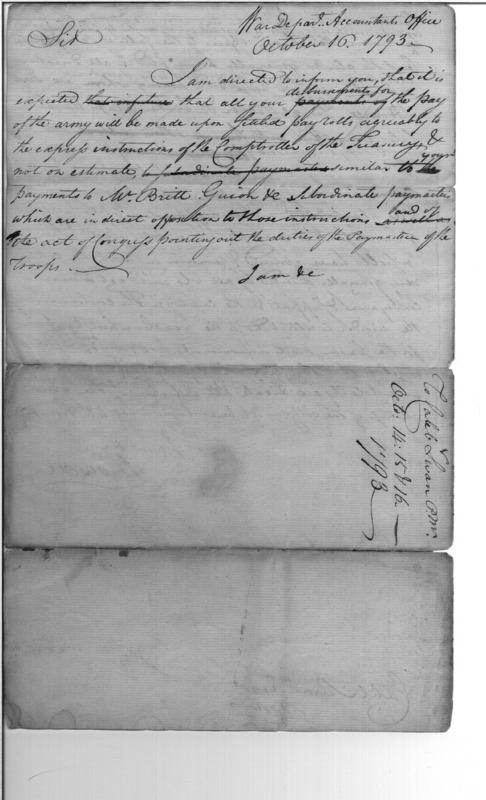 War Depart. Accountants Office
October 16. 1793.
Sir
I am directed to inform you, that it is
disbursments for
expected that in future that all your payments of the pay
of the army will be made upon settled pay rolls agreeably to
the express instructions of the Comptroller of the Treasury &
your
not on estimate, to subordinate paymasters similar to the
payments to Mr. Britt Guion &c Subordinate paymasters
and of
which are in direct opposition to those instructions as well as
the act of Congress pointing out the duties of the Paymaster of the
Troops.
I am &c
To Caleb Swan P.Mr.
Octo: 14: 15 & 16
1793